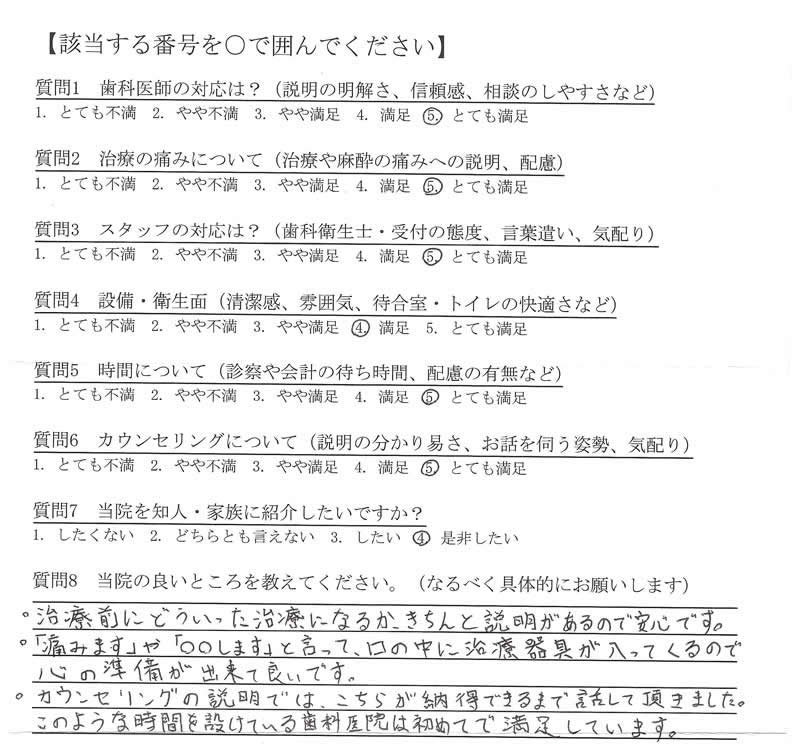 【該当する番号を〇で囲んでください】
質問1 歯科医師の対応は？（説明の明解さ、信頼感、相談のしやすさなど）
1. とても不満 2. やや不満 3. やや満足 4. 満足 5. とても満足
質問2 治療の痛みについて（治療や麻酔の痛みへの説明、配慮）
1. とても不満 2. やや不満 3. やや満足 4. 満足 5. とても満足
質問3 スタッフの対応は？（歯科衛生士・受付の態度、言葉遣い、気配り）
1. とても不満 2. やや不満 3. やや満足 4. 満足 5. とても満足
質問4 設備・衛生面（清潔感、雰囲気、待合室・トイレの快適さなど）
1. とても不満 2. やや不満 3. やや満足 4. 満足 5. とても満足
質問5 時間について（診察や会計の待ち時間、配慮の有無など）
1. とても不満 2. やや不満 3. やや満足 4. 満足 5. とても満足
質問6 カウンセリングについて（説明の分かり易さ、お話を伺う姿勢、気配り）
1. とても不満 2. やや不満 3. やや満足 4. 満足 5. とても満足
質問7 当院を知人・家族に紹介したいですか？
1. したくない 2. どちらとも言えない 3. したい 4. 是非したい
質問8 当院の良いところを教えてください。（なるべく具体的にお願いします）
。治療前にどういった治療になるか、きちんと説明があるので安心です。
。「痛みます」や「〇〇します」と言って、口の中に治療器具が入ってくるので
心の準備が出来て良いです。
。カウンセリングの説明では、こちらが納得できるまで話して頂きました。
このような時間を設けている歯科医院は初めてで満足しています。